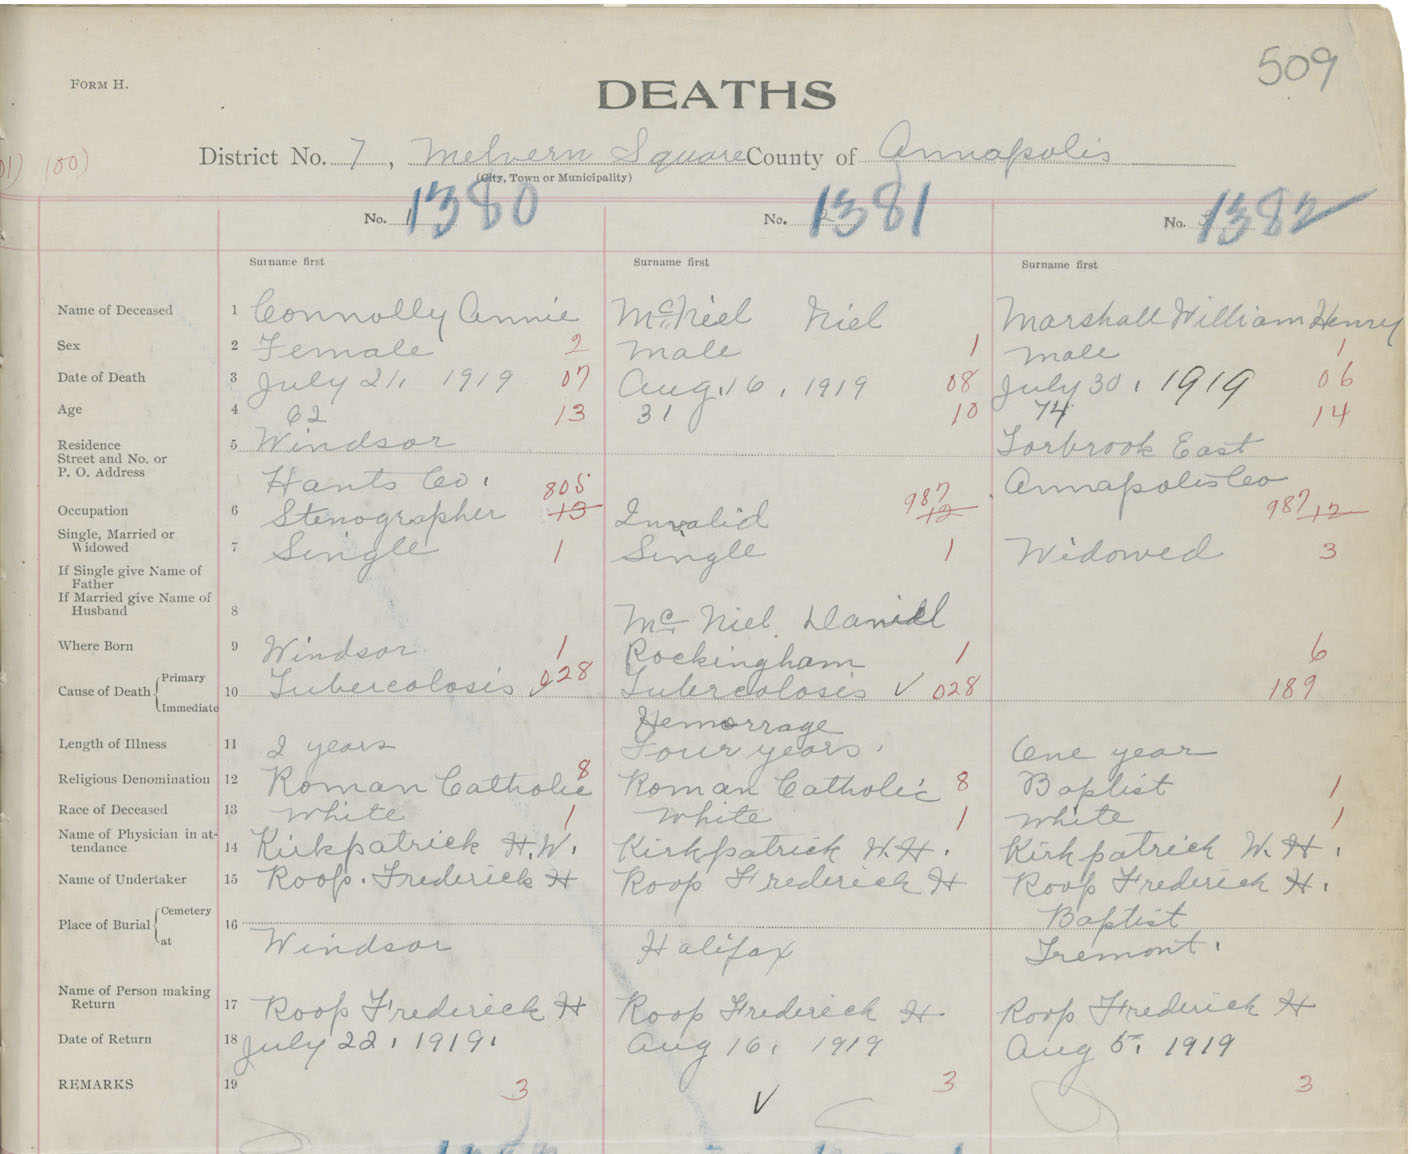 509
FORM H.
DEATHS
District No. 7, Melvern Square County of Annapolis
(City, Town or Municipality)
01) 100)
No. 1 1380 No. 2 1381 No. 3 1382
Surname first Surname first Surname first
Name of Deceased 1 Connolly Annie McNiel Niel Marshall William Henry
Sex 2 Female 2 Male 1 Male 1
Date of Death 3 July 21, 1919 07 Aug. 16, 1919 08 July 30, 1919 06
Age 4 62 13 31 10 74 14
Residence 5 Windsor Torbrook East
Street and No. or
P. O. Address Hants Co. Annapolis Co
805 987 987
Occupation 6 Stenographer 13 Invalid 12 12
Single, Married or
Widowed 7 Single 1 Single 1 Widowed 3
If Single give Name of
Father
If Married give Name of
Husband 8 Mc Niel Daniel
Where Born 9 Windsor 1 Rockingham 1 6
Cause of Death { Primary
10 Tubercolosis 028 Tubercolosis ✓ 028 189
Immediate Hemorrage
Length of Illness 11 2 years Four years. One year
Religious Denomination 12 Roman Catholic 8 Roman Catholic 8 Baptist 1
Race of Deceased 13 White 1 White 1 White 1
Name of Physician in at-
tendance 14 Kirkpatrick H.W. Kirkpatrick W.H. Kirkpatrick W.H.
Name of Undertaker 15 Roop. Frederick H Roop Frederick H Roop Frederick H.
Place of Burial { Cemetery 16 Baptist
at Windsor Halifax Tremont.
Name of Person making
Return 17 Roop Frederick H Roop Frederick H Roop Frederick H
Date of Return 18 July 22, 1919. Aug 16, 1919 Aug 5, 1919
REMARKS 19 3 ✓ 3 3